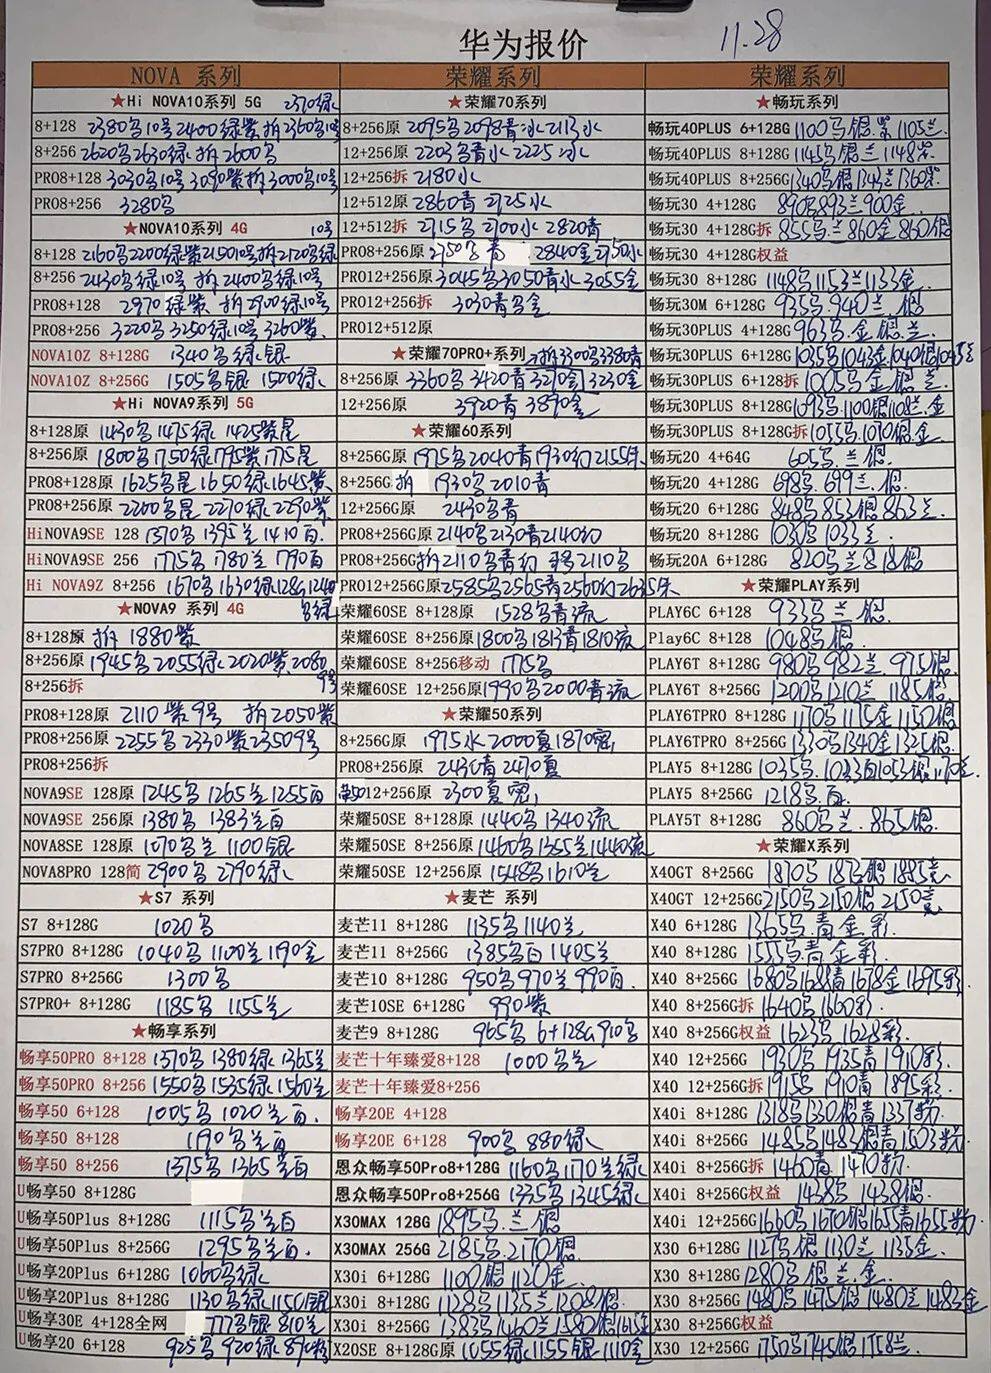 华为报价 11.28
NOVA 系列 荣耀系列 荣耀系列
★Hi NOVA10系列 5G 2370绿
8+128 2380乌10号2400绿紫拆2360乌10号
8+256 2620乌2630绿 拆2600乌
PRO8+128 3030乌10号3090紫拆3000乌10号
PRO8+256 3280乌
★NOVA10系列 4G 10号
8+128 2160乌2200绿紫2150 10号拆2170绿号
8+256 2430乌绿10号 拆2400乌绿10号
PRO8+128 2970绿紫 拆2900绿10号
PRO8+256 3220乌3250绿10号3260紫.
NOVA10Z 8+128G 1340乌绿银
NOVA10Z 8+256G 1505乌银 1500绿
★Hi NOVA9系列 5G
8+128原 1430乌1475绿 1425紫星
8+256原 1800乌1750绿1795紫1775星
PRO8+128原 1625乌星1650绿1645紫
PRO8+256原 2200乌星 2270绿2290紫
HiNOVA9SE 128 1370乌 1395兰 1410百.
HiNOVA9SE 256 1775乌 1780兰 1790百
Hi NOVA9Z 8+256 1670乌1630绿128G1240
★NOVA9 系列 4G 乌绿
8+128原 拆1880紫
8+256原 1945乌2055绿2020紫2080
8+256拆 9号
PRO8+128原 2110紫9号 拆2050紫
PRO8+256原 2255乌2330紫2350 9号
PRO8+256拆
NOVA9SE 128原 1245乌 1265兰1255百
NOVA9SE 256原 1380乌 1383兰百
NOVA8SE 128原 1070乌兰 1100银
NOVA8PRO 128简 2900乌 2790绿
★S7 系列
S7 8+128G 1020乌
S7PRO 8+128G 1040乌1100兰1190金
S7PRO 8+256G 1300乌
S7PRO+ 8+128G 1185乌 1155兰
★畅享系列
畅享50PRO 8+128 1370乌 1380绿1365兰
畅享50PRO 8+256 1550乌1535绿1560兰
畅享50 6+128 1005乌 1020兰百.
畅享50 8+128 1190乌兰百
畅享50 8+256 1375乌 1365兰百
U畅享50 8+128G
U畅享50Plus 8+128G 1115乌兰百
U畅享50Plus 8+256G 1295乌兰百.
U畅享20Plus 6+128G 1060乌绿
U畅享20Plus 8+128G 1130乌绿1150银
U畅享30E 4+128全网 777乌银 810兰
U畅享20 6+128 925乌 920绿 890粉
★荣耀70系列
8+256原 2095乌2098青冰2113水
12+256原 2203乌青水 2225冰
12+256拆 2180水
12+512原 2860青 2725水
12+512拆 2715乌 2700水 2820青
PRO8+256原 2750乌青 2840金2750水
PRO12+256原 3045乌3050青水3055金
PRO12+256拆 3030青乌金
PRO12+512原
★荣耀70PRO+系列 拆3300乌3380青
8+256原 3360乌 3420青 3230金
12+256原 3920青 3890金
★荣耀60系列
8+256G原 1975乌2040青1930幻2155朱
8+256G拆 1930乌2010青
12+256G原 2430乌青
PRO8+256G原2140乌2130青2140幻
PRO8+256G拆2110乌青幻 移2110乌
PRO12+256G原2585乌2565青2560幻2635朱
荣耀60SE 8+128原 1528乌青流
荣耀60SE 8+256原1800乌1813青1810流
荣耀60SE 8+256移动 1775乌
荣耀60SE 12+256原1990乌2000青流
★荣耀50系列
8+256G原 1975水2000夏1870密
PRO8+256原 2430青 2470夏
12+256原 2300夏密
荣耀50SE 8+128原 1440乌 1340流
荣耀50SE 8+256原 1460乌1355兰1440流
荣耀50SE 12+256原 1548乌1610兰
★麦芒 系列
麦芒11 8+128G 1135乌 1140兰
麦芒11 8+256G 1385乌百 1405兰
麦芒10 8+128G 950乌970兰990百
麦芒10SE 6+128G 990紫
麦芒9 8+128G 965乌 6+128G910乌
麦芒十年臻爱8+128 1000乌兰
麦芒十年臻爱8+256
畅享20E 4+128
畅享20E 6+128 900乌 880绿
恩众畅享50Pro8+128G 1160乌1170兰绿
恩众畅享50Pro8+256G 1335乌1345绿
X30MAX 128G 1895乌.兰 银
X30MAX 256G 2185乌.2170银
X30i 6+128G 1100银1120金.
X30i 8+128G 1128乌1135兰1208银
X30i 8+256G 1383乌1460兰1580银1615金
X20SE 8+128G原 1055绿1155银1110金
★畅玩系列
畅玩40PLUS 6+128G1100乌银紫1105兰
畅玩40PLUS 8+128G1145乌银兰1148紫
畅玩40PLUS 8+256G1340乌银1343兰1360紫
畅玩30 4+128G 890乌893兰900金
畅玩30 4+128G拆 855乌兰860金860银
畅玩30 4+128G权益
畅玩30 8+128G 1148乌1153兰1133金
畅玩30M 6+128G 935乌940兰 银
畅玩30PLUS 4+128G963乌.金.银.兰.
畅玩30PLUS 6+128G1035乌1043金1040银1045兰
畅玩30PLUS 6+128拆 1005乌金银兰
畅玩30PLUS 8+128G1093乌1100银1108兰.金
畅玩30PLUS 8+128G拆1055乌1070银.金
畅玩20 4+64G 605乌.兰银.
畅玩20 4+128G 698乌.699兰.银
畅玩20 6+128G 848乌853银863兰
畅玩20 8+128G 1030乌1033兰
畅玩20A 6+128G 820乌兰818银
★荣耀PLAY系列
PLAY6C 6+128 933乌 兰 银.
Play6C 8+128 1048乌银
PLAY6T 8+128G 980乌982兰 975银
PLAY6T 8+256G 1200乌1210兰 1185银
PLAY6TPRO 8+128G 1170乌 1175金1150银
PLAY6TPRO 8+256G 1330乌1340金1325银
PLAY5 8+128G 1035乌.1033百1053银1170兰
PLAY5 8+256G 1218乌.百.
PLAY5T 8+128G 860乌兰.865银.
★荣耀X系列
X40GT 8+256G 1870乌 1873银1885竞
X40GT 12+256G2150乌2150银2150竞
X40 6+128G 1365乌.青 金.彩.
X40 8+128G 1555乌.青 金彩.
X40 8+256G 1680乌1688青1678金1695彩.
X40 8+256G拆 1640乌1660彩
X40 8+256G权益 1623乌1628彩.
X40 12+256G 1930乌 1935青1910彩.
X40 12+256G拆 1915乌 1910青1895彩.
X40i 8+128G 1318乌1330银青1337粉
X40i 8+256G 1485乌1483银青1503粉
X40i 8+256G拆 1460青 1470粉
X40i 8+256G权益 1438乌 1438银.
X40i 12+256G1660乌1670银1655青1655粉
X30 6+128G 1127乌银1130兰 1135金.
X30 8+128G1280乌银兰.金.
X30 8+256G 1480乌1475银1480兰1483金
X30 8+256G权益
X30 12+256G 1750乌1745银1758兰.